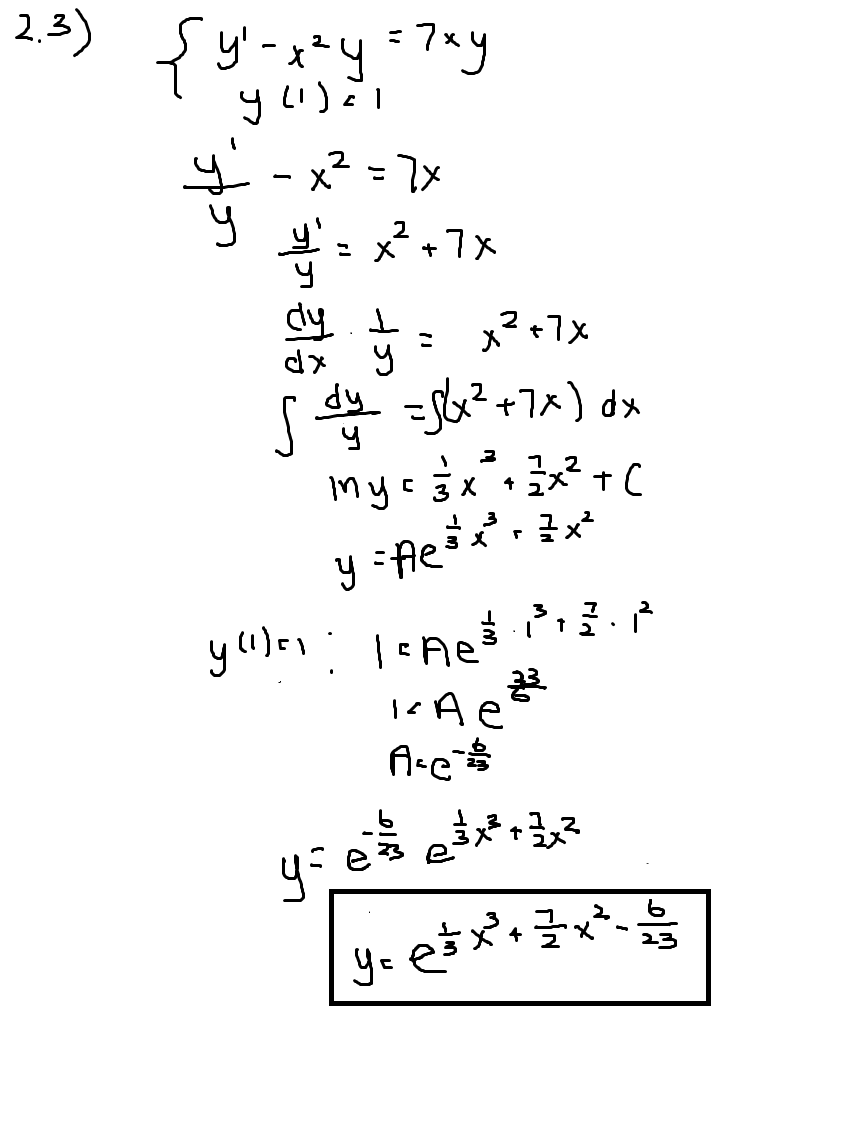 2.3) { y' - x² y = 7xy
y(1) = 1
y'/y - x² = 7x
y'/y = x² + 7x
dy/dx · 1/y = x² + 7x
∫ dy/y = ∫(x² + 7x) dx
ln y = 1/3 x³ + 7/2 x² + C
y = Ae^(1/3 x³ + 7/2 x²)
y(1)=1 : 1 = Ae^(1/3 · 1³ + 7/2 · 1²)
1 = A e^(23/6)
A = e^(-6/23)
y = e^(-6/23) e^(1/3 x³ + 7/2 x²)
y = e^(1/3 x³ + 7/2 x² - 6/23)